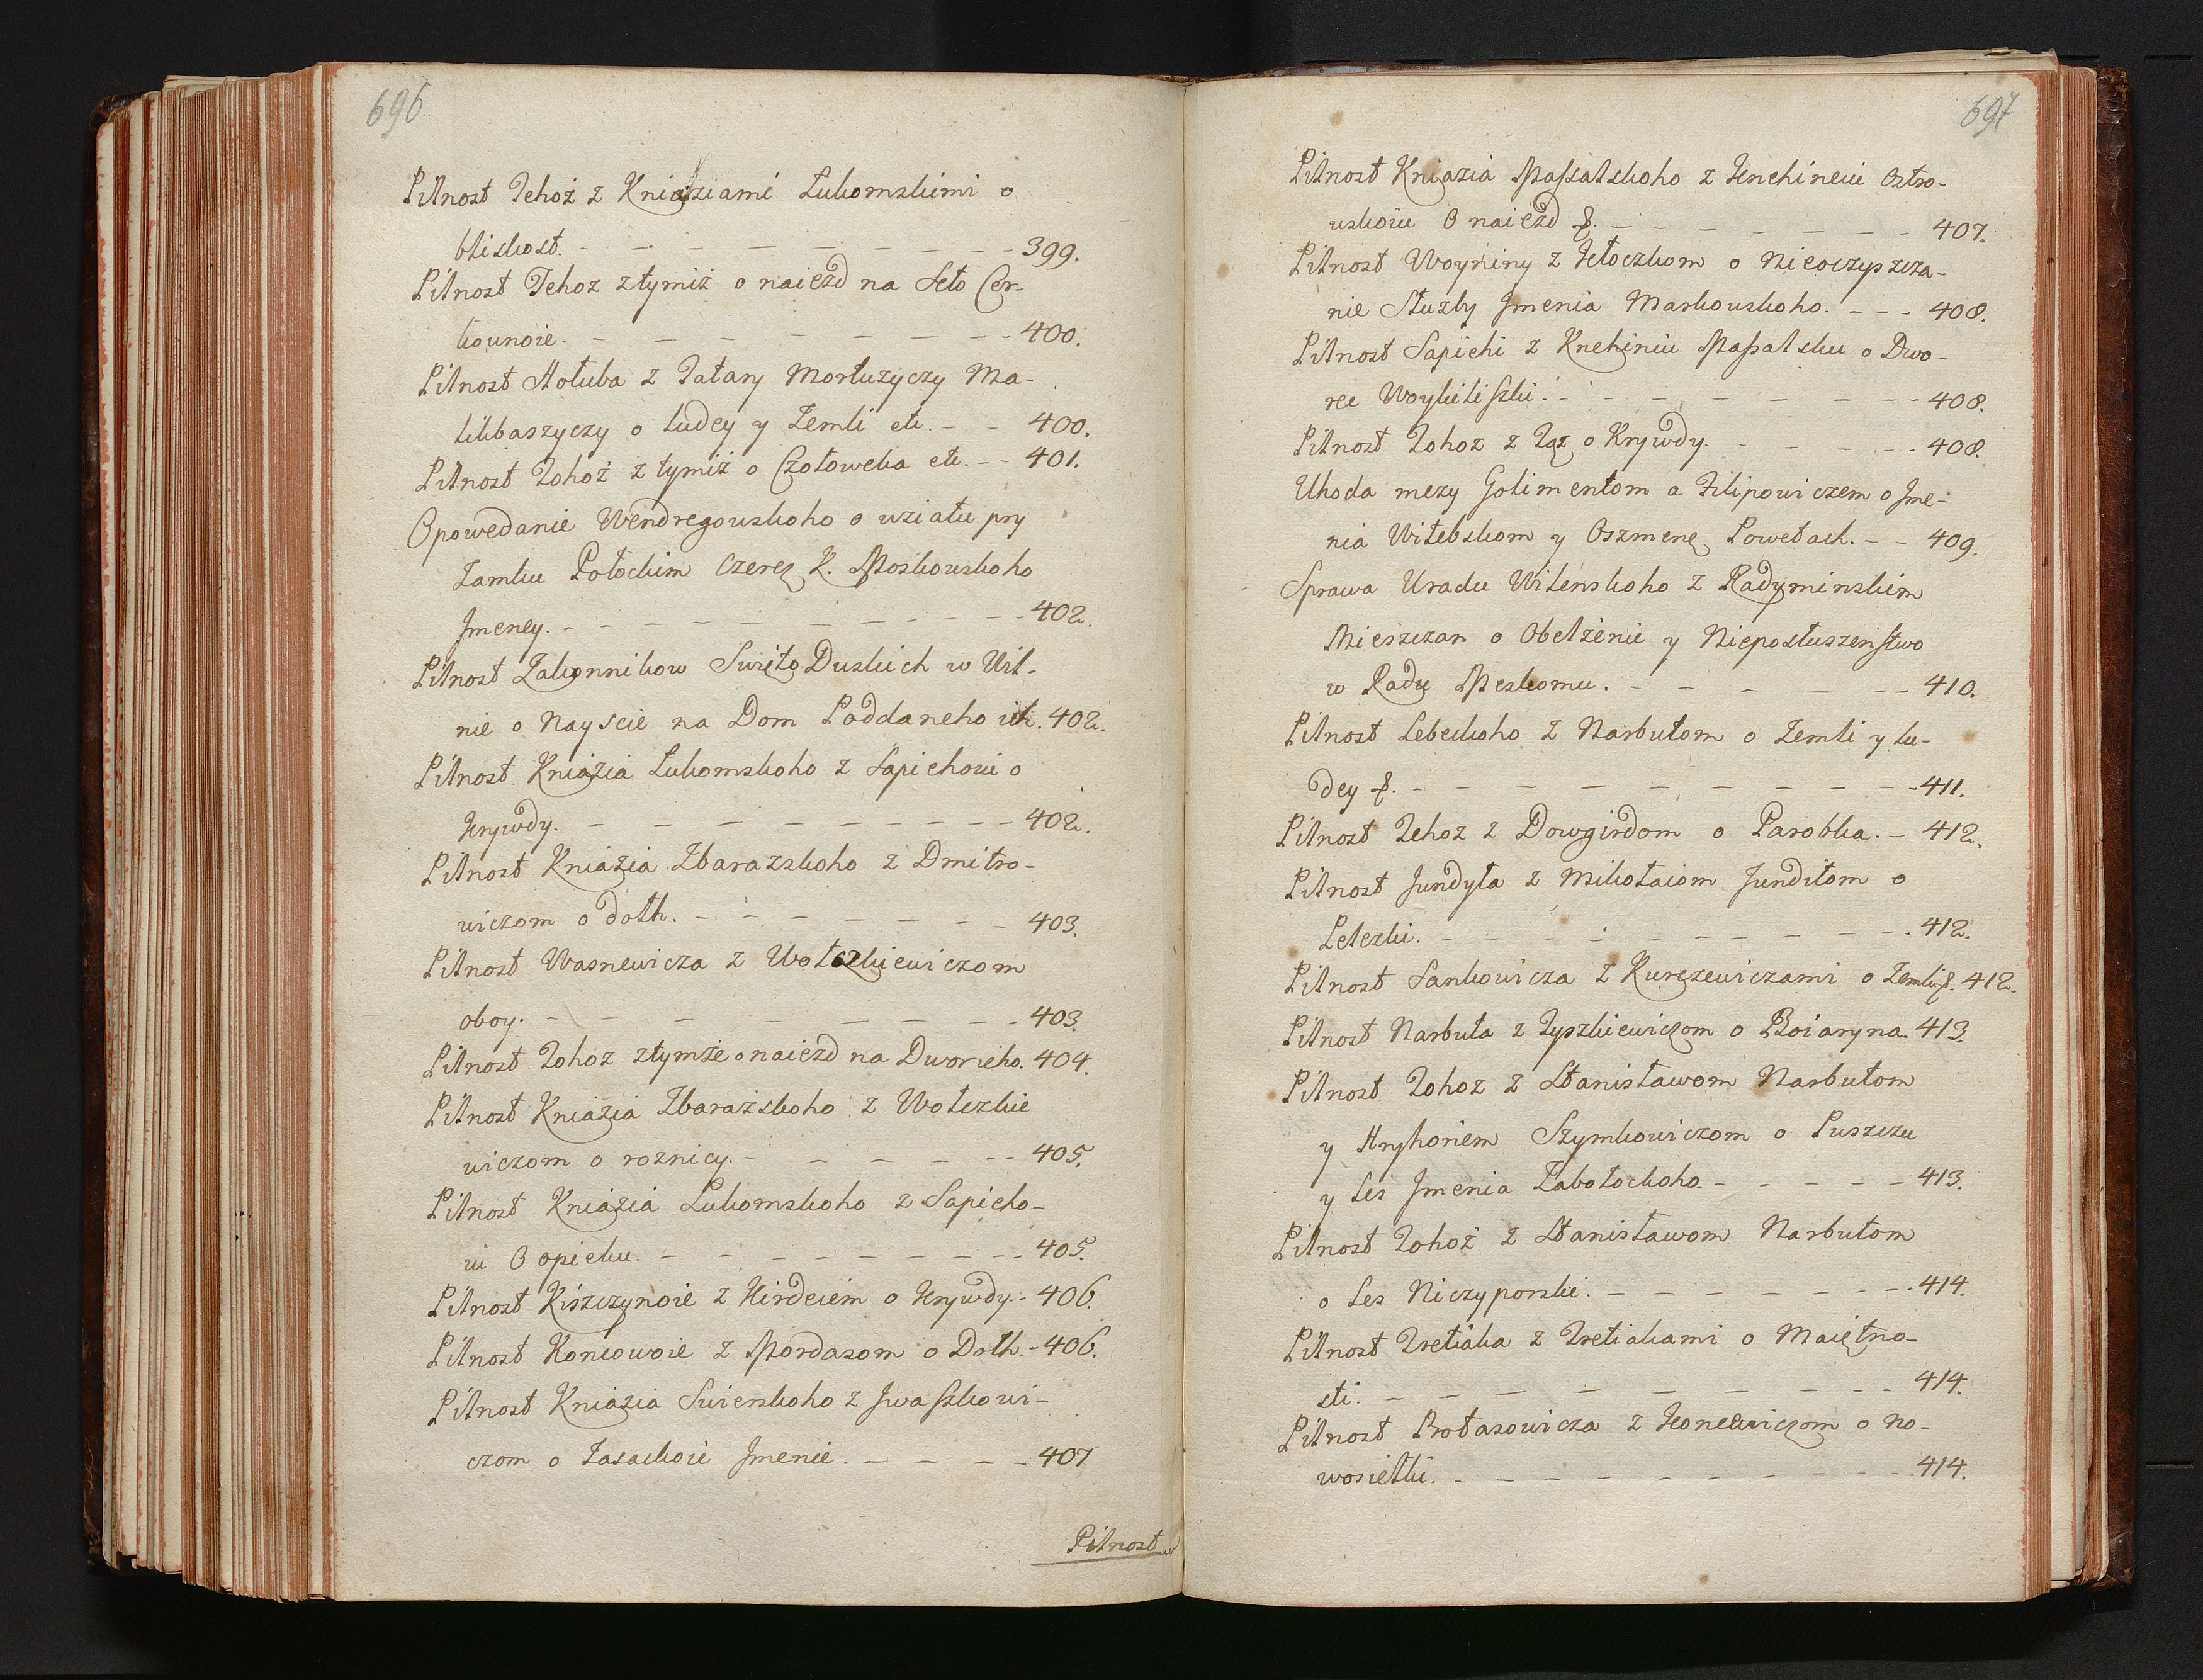 696
Pilnost Tehoż z Kniaziami Lukomskimi o
bliskost. - - - - - - - - 399.
Pilnost Tehoz ztymiż o naiezd na Seło Cer-
kounoie. - - - - - - - - 400.
Pilnost Hołuba z Tatary Mortuzyczy Ma-
likbaszyczy o ludey y Zemli etc. - - 400.
Pilnost Tohoż z tymiż o Czołoweka etc. - - 401.
Opowedanie Wendregouskoho o wziatu pry
Zamku Połockim Czerez K. Moskouskoho
Jmeney. - - - - - - - - 402.
Pilnost Zakonnikow SwiętoDuskich w Wil-
nie o Nayscie na Dom Poddaneho ich. 402.
Pilnost Kniazia Lukomskoho z Sapiehoui o
krywdy. - - - - - - - - 402.
Pilnost Kniazia Zbarazskoho z Dmitro-
wiczom o dołh. - - - - - - - 403.
Pilnost Wasnewicza z Wołczkiewiczom
oboy. - - - - - - - - 403.
Pilnost Tohoz ztymże o naiezd na Dwor ieho. 404.
Pilnost Kniazia Zbarażskoho z Wołczkie
wiczom o roznicy. - - - - - - 405.
Pilnost Kniazia Lukomskoho z Sapieho-
wi O opieku. - - - - - - - 405.
Pilnost Kiszczynoie z Hirdeiem o krywdy. - 406.
Pilnost Koncowoie z Mordasom o Dołh. - 406.
Pilnost Kniazia Swirskoho z Jwaszkowi-
czom o Zasackoie Jmenie. - - - - 407
Pilnost
697
Pilnost Kniazia Massalskoho z Knehineiu Ostro-
uskoiu O naiezd - - - - - - 407.
Pilnost Woyniny z Kłoczkom o Nieoczyszcza-
nie Służby Jmenia Markouskoho. - - - 408.
Pilnost Sapiehi z Knehiniu Massalsku o Dwo-
rec Woykiliszki. - - - - - - 408.
Pilnost Tohoz z Tąz o Krywdy. - - - - 408.
Uhoda mezy Golimentom a Filipowiczem o Jme-
nia Witebskom y Oszmenę Powetach. - - 409.
Sprawa Uradu Wilenskoho z Radyminskim
Mieszczan o Obelżenie y Nieposłuszeństwo
w Radę Meskomu. - - - - - - 410.
Pilnost Lebeckoho z Narbutom o Zemli y lu-
dey - - - - - - - - - 411.
Pilnost Tehoz z Dowgirdom o Parobka. - 412.
Pilnost Jundyła z Mikołaiom Jundiłom o
Leleżki. - - - - - - - - 412.
Pilnost Sankowicza z Kurczewiczami o Zemli 412.
Pilnost Narbuta z Tyszkiewiczom o Boiaryna. 413.
Pilnost Tohoz z Stanisławom Narbutom
y Hryhoriem Szymkowiczom o Puszczu
y Les Jmenia Zabołockoho. - - - - - 413.
Pilnost Tohoż z Stanisławom Narbutom
o Les Niczyporski. - - - - - - 414.
Pilnost Tretiaka z Tretiakami o Maiętno-
sti. - - - - - - - - 414.
Pilnost Protasowicza z Koncewiczom o No-
wosiełki. - - - - - - - - 414.